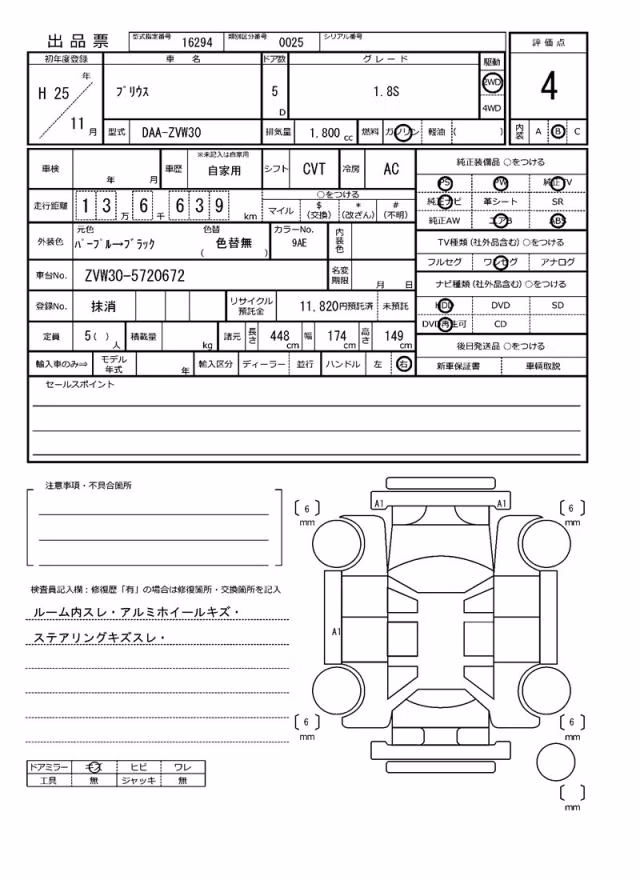 出品票 型式指定番号 16294 類別区分番号 0025 シリアル番号
初年度登録 車名 ドア数 グレード 駆動 評価点
H 25 年 11 月 プリウス 5 D 1.8S 2WD 4WD 4
型式 DAA-ZVW30 排気量 1.800 cc 燃料 ガソリン 軽油 ( ) 内装 A B C
車検 年 月 車歴 ※未記入は自家用 自家用 シフト CVT 冷房 AC
走行距離 1 3 万 6 千 6 3 9 km ○をつける マイル $(交換) *(改ざん) #(不明)
外装色 元色 パープル→ブラック 色替 ( 色替無 ) カラーNo. 9AE 内装色
車台No. ZVW30-5720672 名変期限 月 日
登録No. 抹消 リサイクル預託金 11,820円預託済 未預託
定員 5 ( ) 人 積載量 kg 諸元 長さ 448 cm 幅 174 cm 高さ 149 cm
輸入車のみ⇒ モデル年式 年 輸入区分 ディーラー 並行 ハンドル 左 右
純正装備品 ○をつける
PS PW 純正TV
純正ナビ 革シート SR
純正AW エアB ABS
TV種類(社外品含む)○をつける
フルセグ ワンセグ アナログ
ナビ種類(社外品含む)○をつける
HDD DVD SD
DVD再生可 CD
後日発送品 ○をつける
新車保証書 車輌取説
セールスポイント
注意事項・不具合箇所
検査員記入欄:修復歴「有」の場合は修復箇所・交換箇所を記入
ルーム内スレ・アルミホイールキズ・
ステアリングキズスレ・
ドアミラー キズ ヒビ ワレ
工具 無 ジャッキ 無
A1 A1
[ 6 ] mm [ 6 ] mm
A1
[ 6 ] mm [ 6 ] mm
[ ] mm